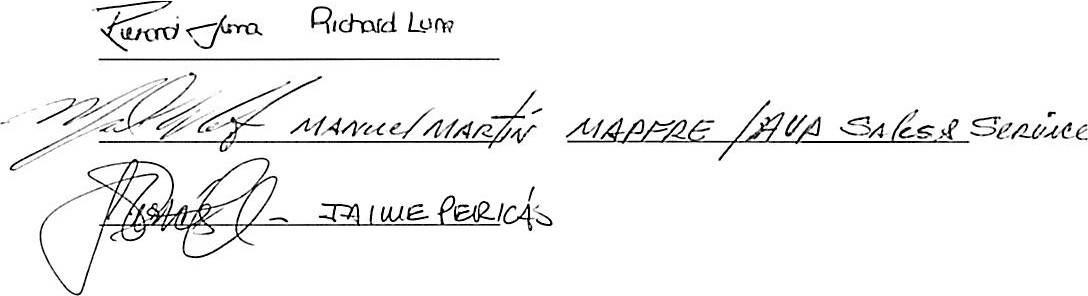 Richard Lum
MANUEL MARTÍN MAPFRE / AVP Sales & Service
JAIME PERICÁS